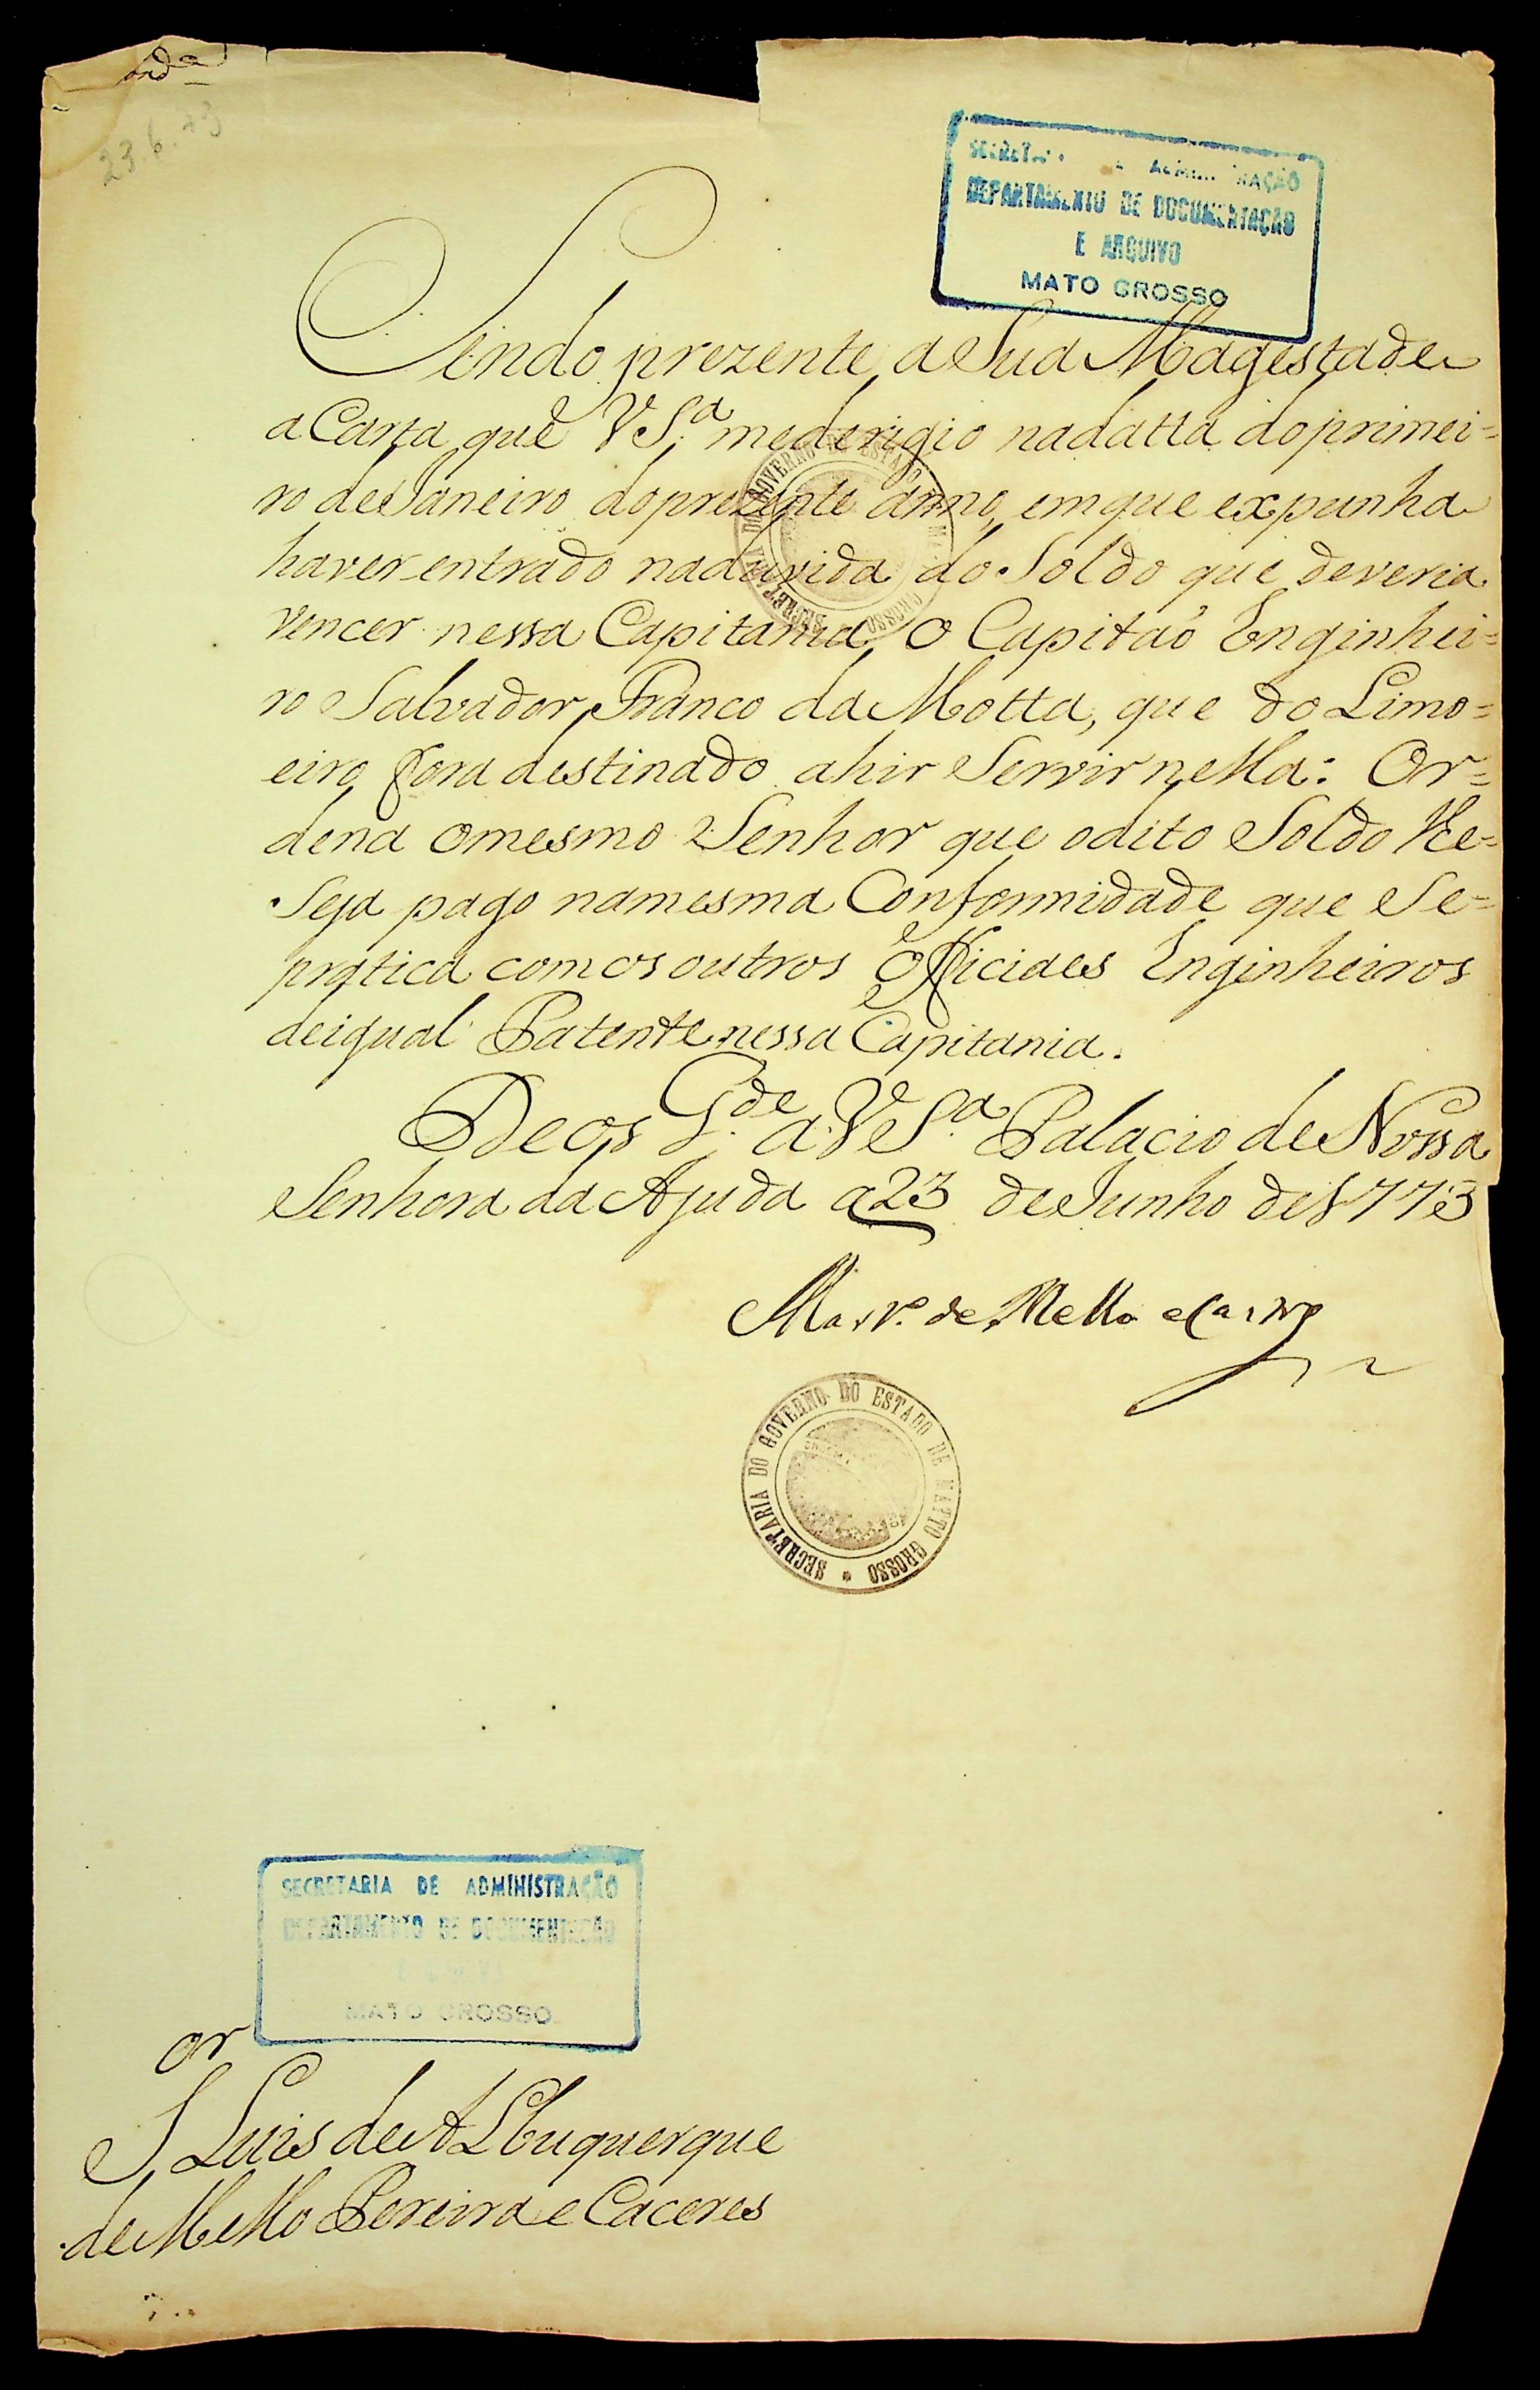 23.6.73
SECRETARIA DE ADMINISTRAÇÃO
DEPARTAMENTO DE DOCUMENTAÇÃO
E ARQUIVO
MATO GROSSO
Sendo prezente a Sua Magestade
a Carta que V S.ª mederigio nadatta doprimei=
ro deJaneiro doprezente anno, emque expunha
haver entrado naduvida do Soldo que deveria
vencer nessa Capitania o Capitaõ Enginhei=
ro Salvador Franco da Motta, que do Limo=
eiro fora destinado ahir Servir nella: Or=
dena omesmo Senhor que odito Soldo lhe=
Seja pago namesma Conformidade que Se=
pratica comosoutros Officiaes Enginheiros
deigual Patente nessa Capitania.
Deos G.de a V S.ª Palacio de Nossa
Senhora da Ajuda a 23 de Junho de 1773
Mar.º de Mello e Castro
SECRETARIA DO GOVERNO DO ESTADO DE MATTO GROSSO
SECRETARIA DE ADMINISTRAÇÃO
DEPARTAMENTO DE DOCUMENTAÇÃO
MATO GROSSO
S.or Luis de Albuquerque
de Mello Pereira e Caceres